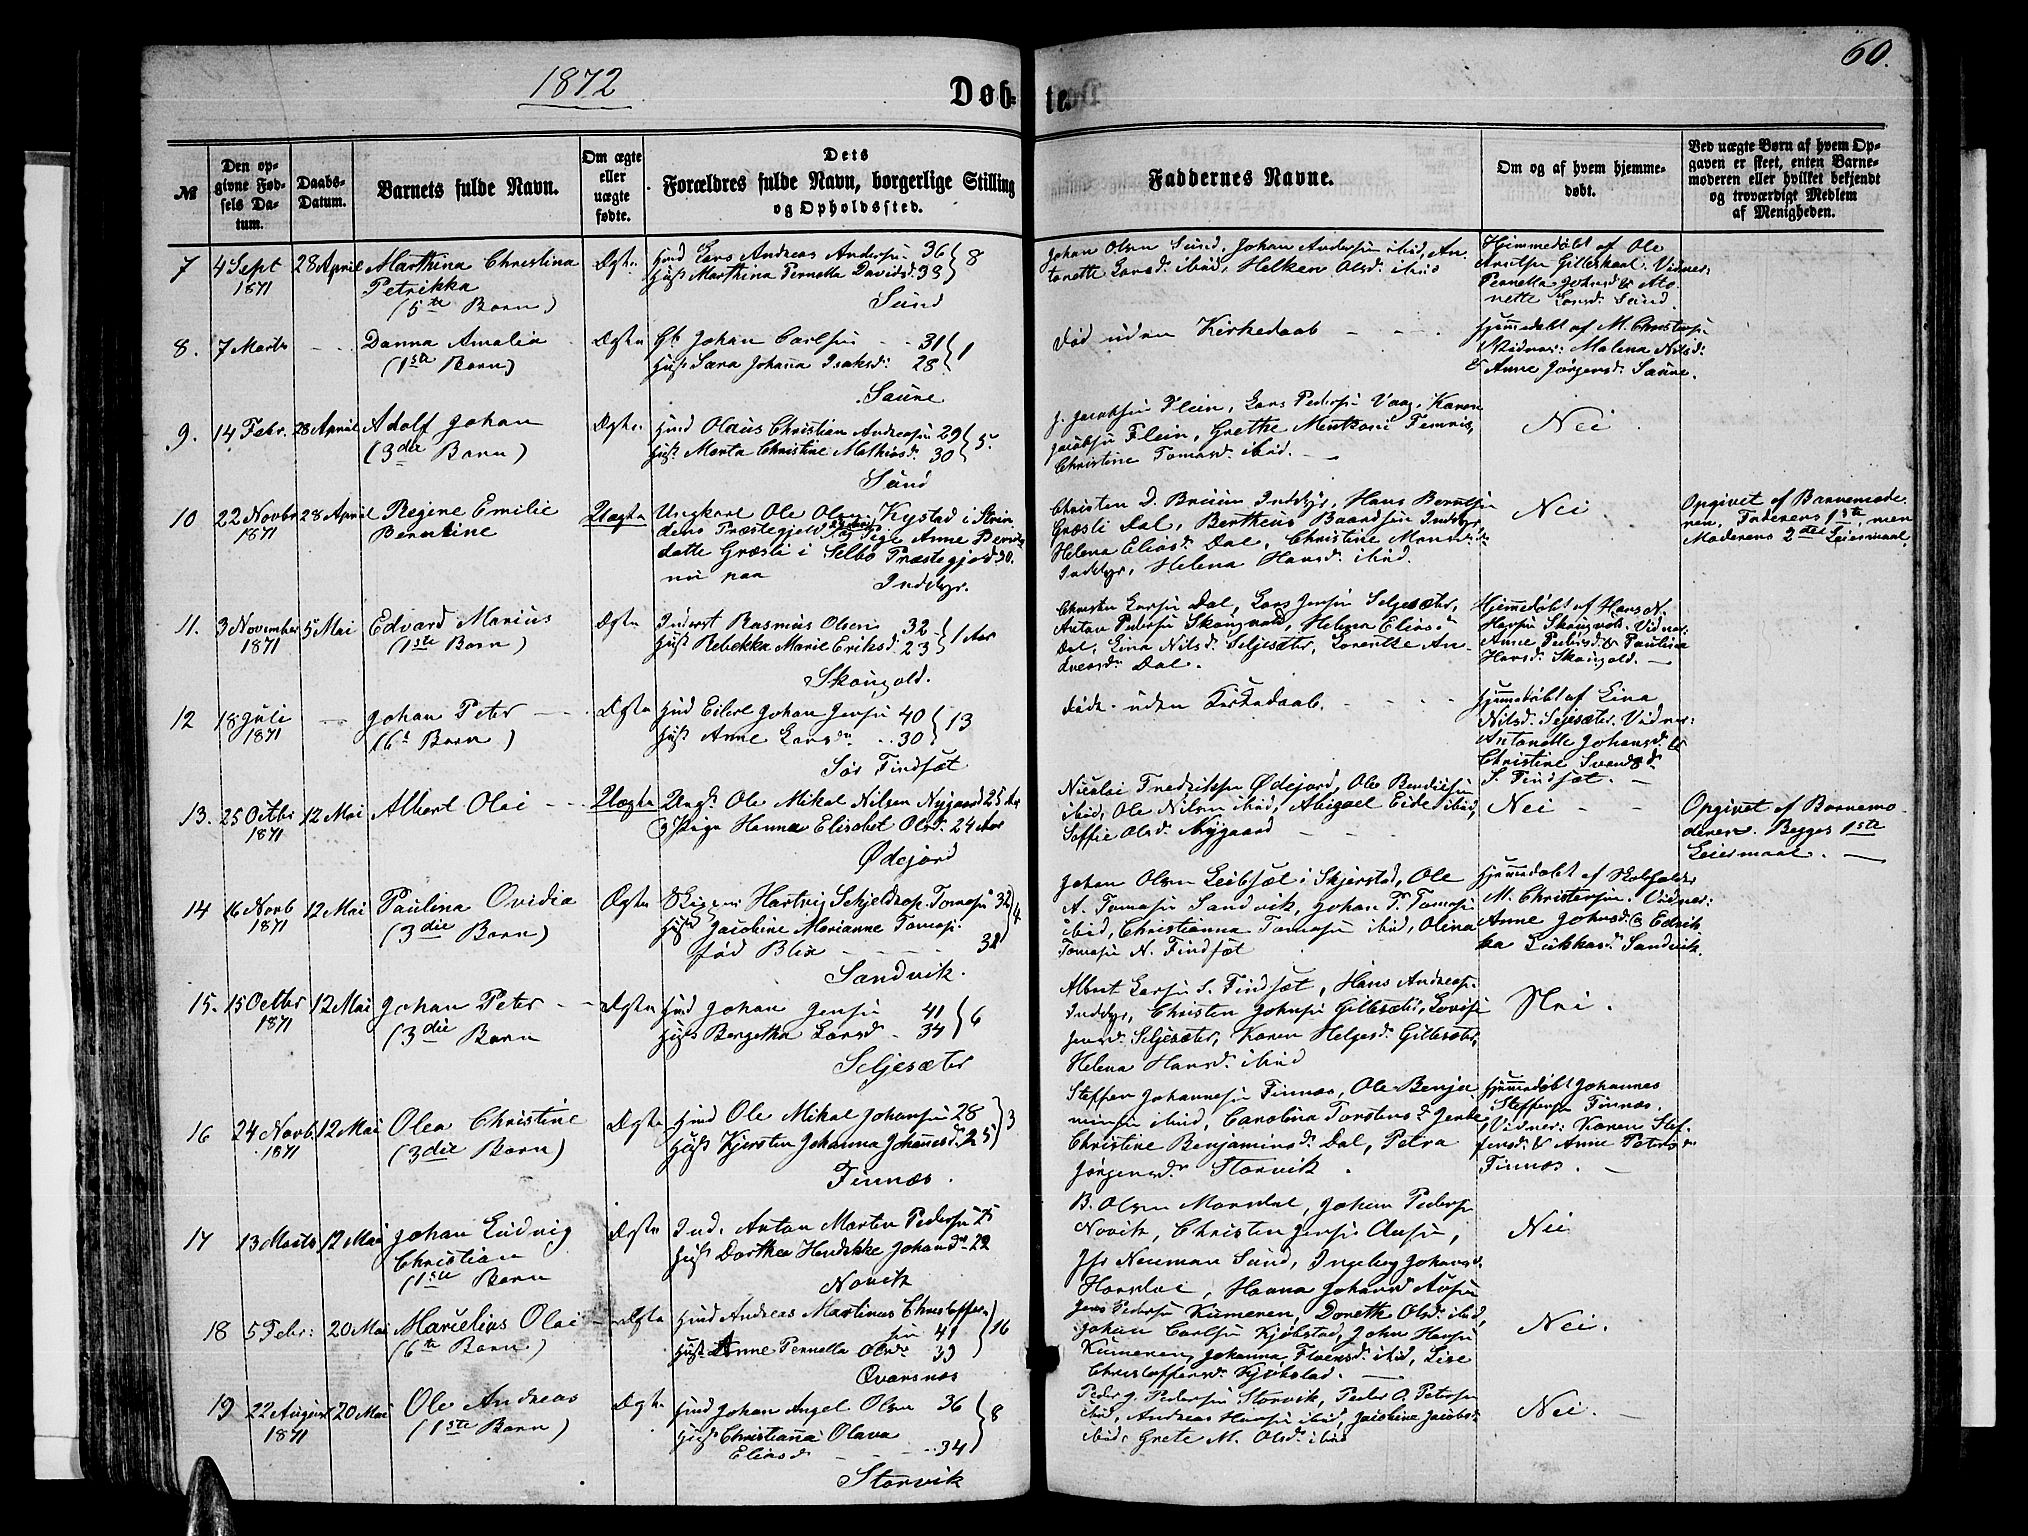 1872
60.
Døb-
te
№
Den op-
givne Fød-
sels Da-
tum.
Daabs-
Datum.
Barnets fulde Navn.
Om ægte
eller
uægte
fødte.
Dets
Forældres fulde Navn, borgerlige Stilling
og Opholdssted.
Faddernes Navne.
Om og af hvem hjemme-
døbt.
Ved uægte Børn af hvem Op-
gaven er skeet, enten Barne-
moderen eller hvilket bekjendt
og troværdigt Medlem
af Menigheden.
7 4 Sept 28 April Marthina Christina Ægte
1871 Petrikka
(5te Barn)
Hmd Lars Andreas Andersen 36 } 8
Hust Marthina Pernella Davidsd. 38
Sund
Johan Olsen Sund, Johan Andersen ibid, An-
tonette Larsd. ibid, Helken Olsd. ibid
Hjemmedøbt af Ole
Gilleskaal. Vidner:
Pernella Johnsd &
nette Larsd. Sund
8. 7 Marts - - Danna Amalia Ægte
(1ste Barn)
Johan Carlsen - - 31 } 1
Hust Sara Johana Isaksd. 28
Saure
død uden Kirkedaab - - -
Hjemmedøbt af M. Christersen
Vidner: Malena Nilsd.
& Anne Jørgensd. Saure.
9. 14 Febr. 28 April Adolf Johan Ægte
(3die Barn)
Hmd Olaus Christian Andreasen 29 } 5
Hust. Marta Christine Mathisd. 30
Sund
J. Jacobsen Flein, Lars Pedersen Vaag, Karen
Jacobsen Flein, Grethe
Christine Tomasd. ibid.
Nei
10 22 Novbr 28 April Regine Emilie Uægte
1871 Berntine
Ungkarl Ole Olsen Kystad i Strin
dens Præstegjeld Pige Anne Bern
dotte Græsli i Selbo Præstegjeld 30.
nu paa
Inddyr.
Christen D. Bruun Inddyr, Hans Berntsen
Græsli Dal, Bertheus Baardsen Inddyr,
Helena Eliasd. Dal, Christine Monsd.
Inddyr, Helena Hansd. ibid.
Nei
Opgivet af Barnemode
ren. Faderens 1ste, men
Moderens 2det Leiermaal.
11. 3 November 5 Mai Edvard Marius Ægte
1871 (1ste Barn)
Inderst Rasmus Olsen 32 } 1 Aar
Hust Rebekka Marie Eriksd. 23
Skougvold.
Christen Larsen Dal, Lars Jensen Seljesæter,
Anton Pedersen Skougvold, Helena Eliasd.
Dal, Lina Nilsd. Seljesæter, Lorentze An-
dreasd. Dal.
Hjemmedøbt af Hans N.
Hansen Skougvold. Vidner:
Anne Pedersd. & Paulina
Hansd. Skougvold. —
12 18 Juli - - Johan Peter - - Ægte
1871 (6te Barn)
Hmd Eilert Johan Jensen 40 } 13
Hust Anne Larsdr. - 30
Sør Findsæt
døde uden Kirkedaab. - - -
Hjemmedøbt af Lina
Nilsd. Seljesæter. Vidner:
Antonette Johansd. &
Christine Svendsd.
S. Findsæt. —
13. 25 Octbr 12 Mai Albert Olai - - Uægte
1871
Ungk. Ole Mikal Nilsen Nygaard 25 Aar
& Pige Hanna Elisabet Olsd. 24 Aar
Ødejord
Nicolai Fredriksen Ødejord, Ole Bendiksen
ibid, Ole Nilsen ibid, Abigael Eide ibid,
Soffie Olsd. Nygaard - -
Nei - -
Opgivet af Barnemo-
deren. Begges 1ste
Leiermaal. —
14 16 Novb 12 Mai Paulina Ovidia Ægte
1871 (3die Barn)
Hartvig Schjeldrop Tomasen 32 } 4
Hust Jacobine Marianne Tomas.
fød Blix - - - 38
Sandvik.
Johan Olsen Leibsæt i Skjerstad, Ole
A. Tomasen Sandvik, Johan P. Tomasen
ibid, Christianna Tomasen ibid, Olina
Tomasen N. Findsæt
Hjemmedøbt af
M. Christersen. Vidner:
Anne Johnsd. & Edvik
ka Lukkasd. Sandvik.
15. 15 Octbr 12 Mai Johan Peter - - Ægte
1871 (3die Barn
Hmd Johan Jensen 41 } 6
Hust Bergetha Larsd - 34
Seljesæter
Albert Larsen S. Findsæt, Hans Andreas.
Inddyr, Christen Johnsen Gillesæter, Lovise
Jensd. Seljesæter, Karen Helgesd. Gillesæter,
Helena Hansd. ibid
Nei.
16 24 Novb. 12 Mai Olea Christine Ægte
1871 (3die Barn)
Hmd Ole Mikal Johansen 28 } 3
Hust Kjersten Johanna Johansd. 25
Finnæs.
Steffen Johannesen Finnæs, Ole Benja
minsen ibid, Carolina Torstensd.
Christine Benjaminsd. Dal, Petra
Jørgensdr. Storvik.
Hjemmedøbt Johannes
Steffensen Finnæs.
Vidner: Karen Stef
fensd. & Anne Petersd.
Finnæs. —
17 13 Marts 12 Mai Johan Ludvig Ægte
Christian
(1ste Barn
Ind. Anton Morten Pedersen 25
Hust Dorthea Hendrikke Johansdr. 22
Novik
B. Olsen Marsdal, Johan Pedersen
Novik, Christen Jensen
Neuman Sund, Ingeborg Johansd.
Hanna Johansd
Nei
18 5 Febr: 20 Mai Marielius Olai - Ægte
(6te Barn)
Hmd Andreas Martinus Christoffer-
sen 41 } 16
Hust Anne Pernella Olsdr. 39
Qvarsnæs
Jens Pedersen Kunæren, Dorette Olsd. ibid,
Johan Carlsen Kjøbstad, John Hansen
Kunæren, Johanna ibid, Lise
Christoffersd. Kjøbstad. —
Nei.
19 22 August 20 Mai Ole Andreas Ægte
1871 (1ste Barn)
Hmd Johan Angel Olsen 36 } 8
Hust Christiana Olava
Eliasd - - 34
Storvik
Peder J. Pedersen Storvik, Peder O. Petersen
ibid, Andreas Hansen ibid, Jacobine Jacobsd.
ibid, Grete M. Olsd. ibid
Nei. —